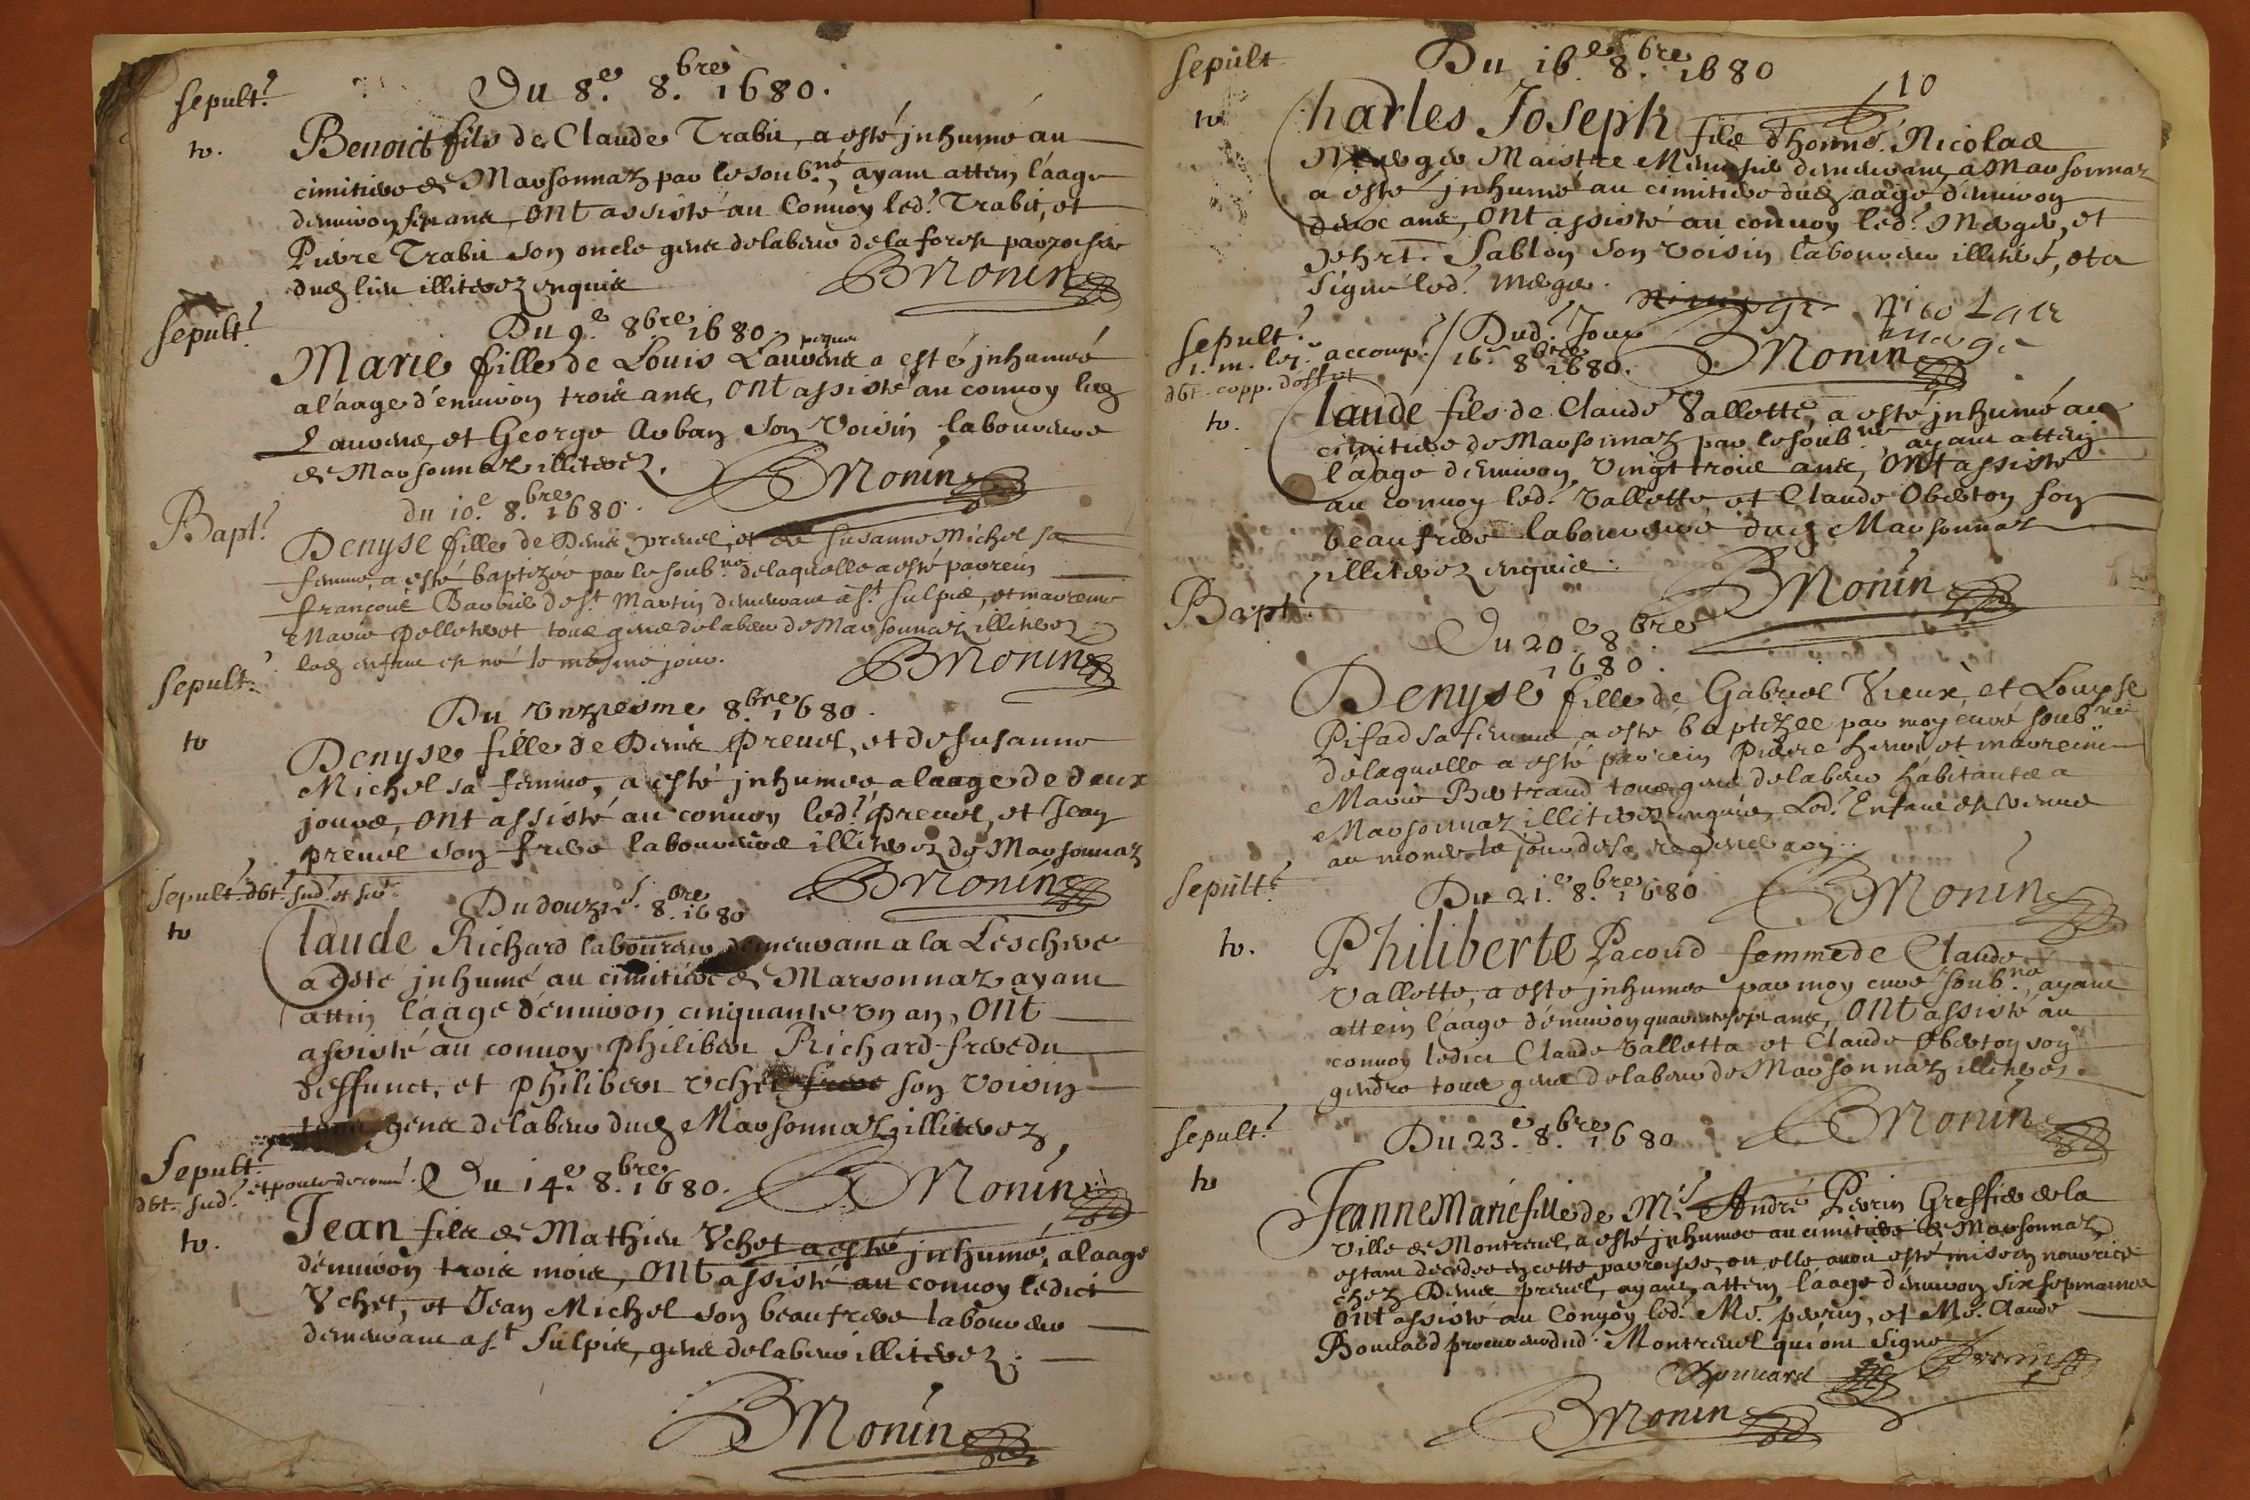 Sepult.
Du 8.e 8.bre 1680.
Benoict fils de Claude Trabit, a esté jnhumé au
cimitiere de Marsonnaz par le soub.né, ayant attein l'aage
d'environ sept ans, ONt assisté au Convoy led.t Trabit, et
Pierre Trabit son oncle gens de labeur de la forest parroisse
dud lieu illiterez enquis
BMonin
Sepult.
Du 9.e 8bre 1680.
Marie fille de Louis Lauvens a esté jnhumée
a l'aage d'environ trois ans, ONt assisté au convoy led
Lauvens, et George son voisin laboureurs
de Marsonnaz illiterez.
BMonin
Bapt.
du 10.e 8.bre 1680.
Denyse fille de Denis Prevel, et de Susanne Michel sa
femme, a esté baptizee par le soub.né de laquelle a esté parrein
françois Barbier de s.t Martin demeurant a s.t Sulpis, et marreine
Marie Pelleterot tous gens de labeur de Marsonnaz illiterez
lad enfant est né le mesme jour.
BMonin
Sepult.
Du Vnzeisme 8.bre 1680.
Denyse fille de Denis Prevel, et de Susanne
Michel sa femme, a esté jnhumee a l'aage de deux
jours, ONt assisté au convoy led.t Prevel, et Jean
prevel son frere laboureurs illiterez de Marsonnaz
BMonin
Sepult.
Du douzie. 8.bre 1680
Claude Richard laboureur demeurant a la Leschere
a esté jnhumé au cimitiere de Marsonnaz ayant
attein l'aage d'environ cinquante vn an, ONt
assisté au convoy Philibert Richard frere du
deffunct, et Philibert Vchet frere son voisin
tous gens de labeur dud Marsonnaz illiterez
Sepult.
Du 14.e 8.bre 1680.
BMonin
Jean fils de Mathieu Vchet a esté jnhumé, a l'aage
d'environ trois mois, ONt assisté au convoy ledict
Vchet, et Jean Michel son beaufrere laboureur
demeurant a s.t Sulpis, gens de labeur illiterez.
BMonin
Sepult
Du 16.e 8.bre 1680
10
Charles Joseph fils d'honn.é Nicolas
Mege Maistre demeurant a Marsonnaz
a esté jnhumé au cimitiere dud aagé d'environ
deux ans, ONt assisté au convoy led.t Mege, et
Sablon son voisin laboureur illiteré, et a
signé led.t Mege.
Nicolas
mege
Sepult.
Dud.t Jour
16.e 8bre 1680.
BMonin
Claude fils de Claude Vallette, a esté jnhumé au
cimitiere de Marsonnaz par le soub.né ayant attein
l'aage d'environ vingt trois ans, ONt assisté
au convoy led.t Vallette, et Claude Oberton son
beaufrere laboureurs dud Marsonnaz
illiterez enquis.
BMonin
Bapt.
Du 20.e 8.bre
1680.
Denyse fille de Gabriel Vieux, et Louyse
Pisad sa femme, a esté baptizee par moy curé soub.né
de laquelle a esté parrein Pierre et marreine
Marie Bertrand tous gens de labeur habitants a
Marsonnaz illiterez enquis, Led.t Enfant est venue
au monde le jour de sa regeneraon.
Sepult.
Du 21.e 8.bre 1680
BMonin
Philiberte Pacoud femme de Claude
Vallette, a esté jnhumee par moy curé soub.né, ayant
attein l'aage d'environ quarante sept ans, ONt assisté au
convoy ledict Claude Vallette et Claude Oberton son
gendre tous gens de labeur de Marsonnaz illiterez.
Sepult.
Du 23.e 8.bre 1680
BMonin
Jeanne Marie fille de M.e André Perrin Greffier de la
ville de Montrevel, a esté jnhumee au cimitiere de Marsonnaz
estant decedee en cette parroisse, ou elle avoit esté mise en nourrice
chez Denis Prevel, ayant attein l'aage d'environ six sepmaines
ONt assisté au Convoy led. Me. Perrin, et Me. Claude
Bouvard procureur dud. Montrevel qui ont signé
Bouvard
Perrin
BMonin